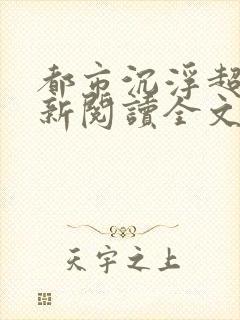 都市沉浮超
新閱讀全文
天宇之上